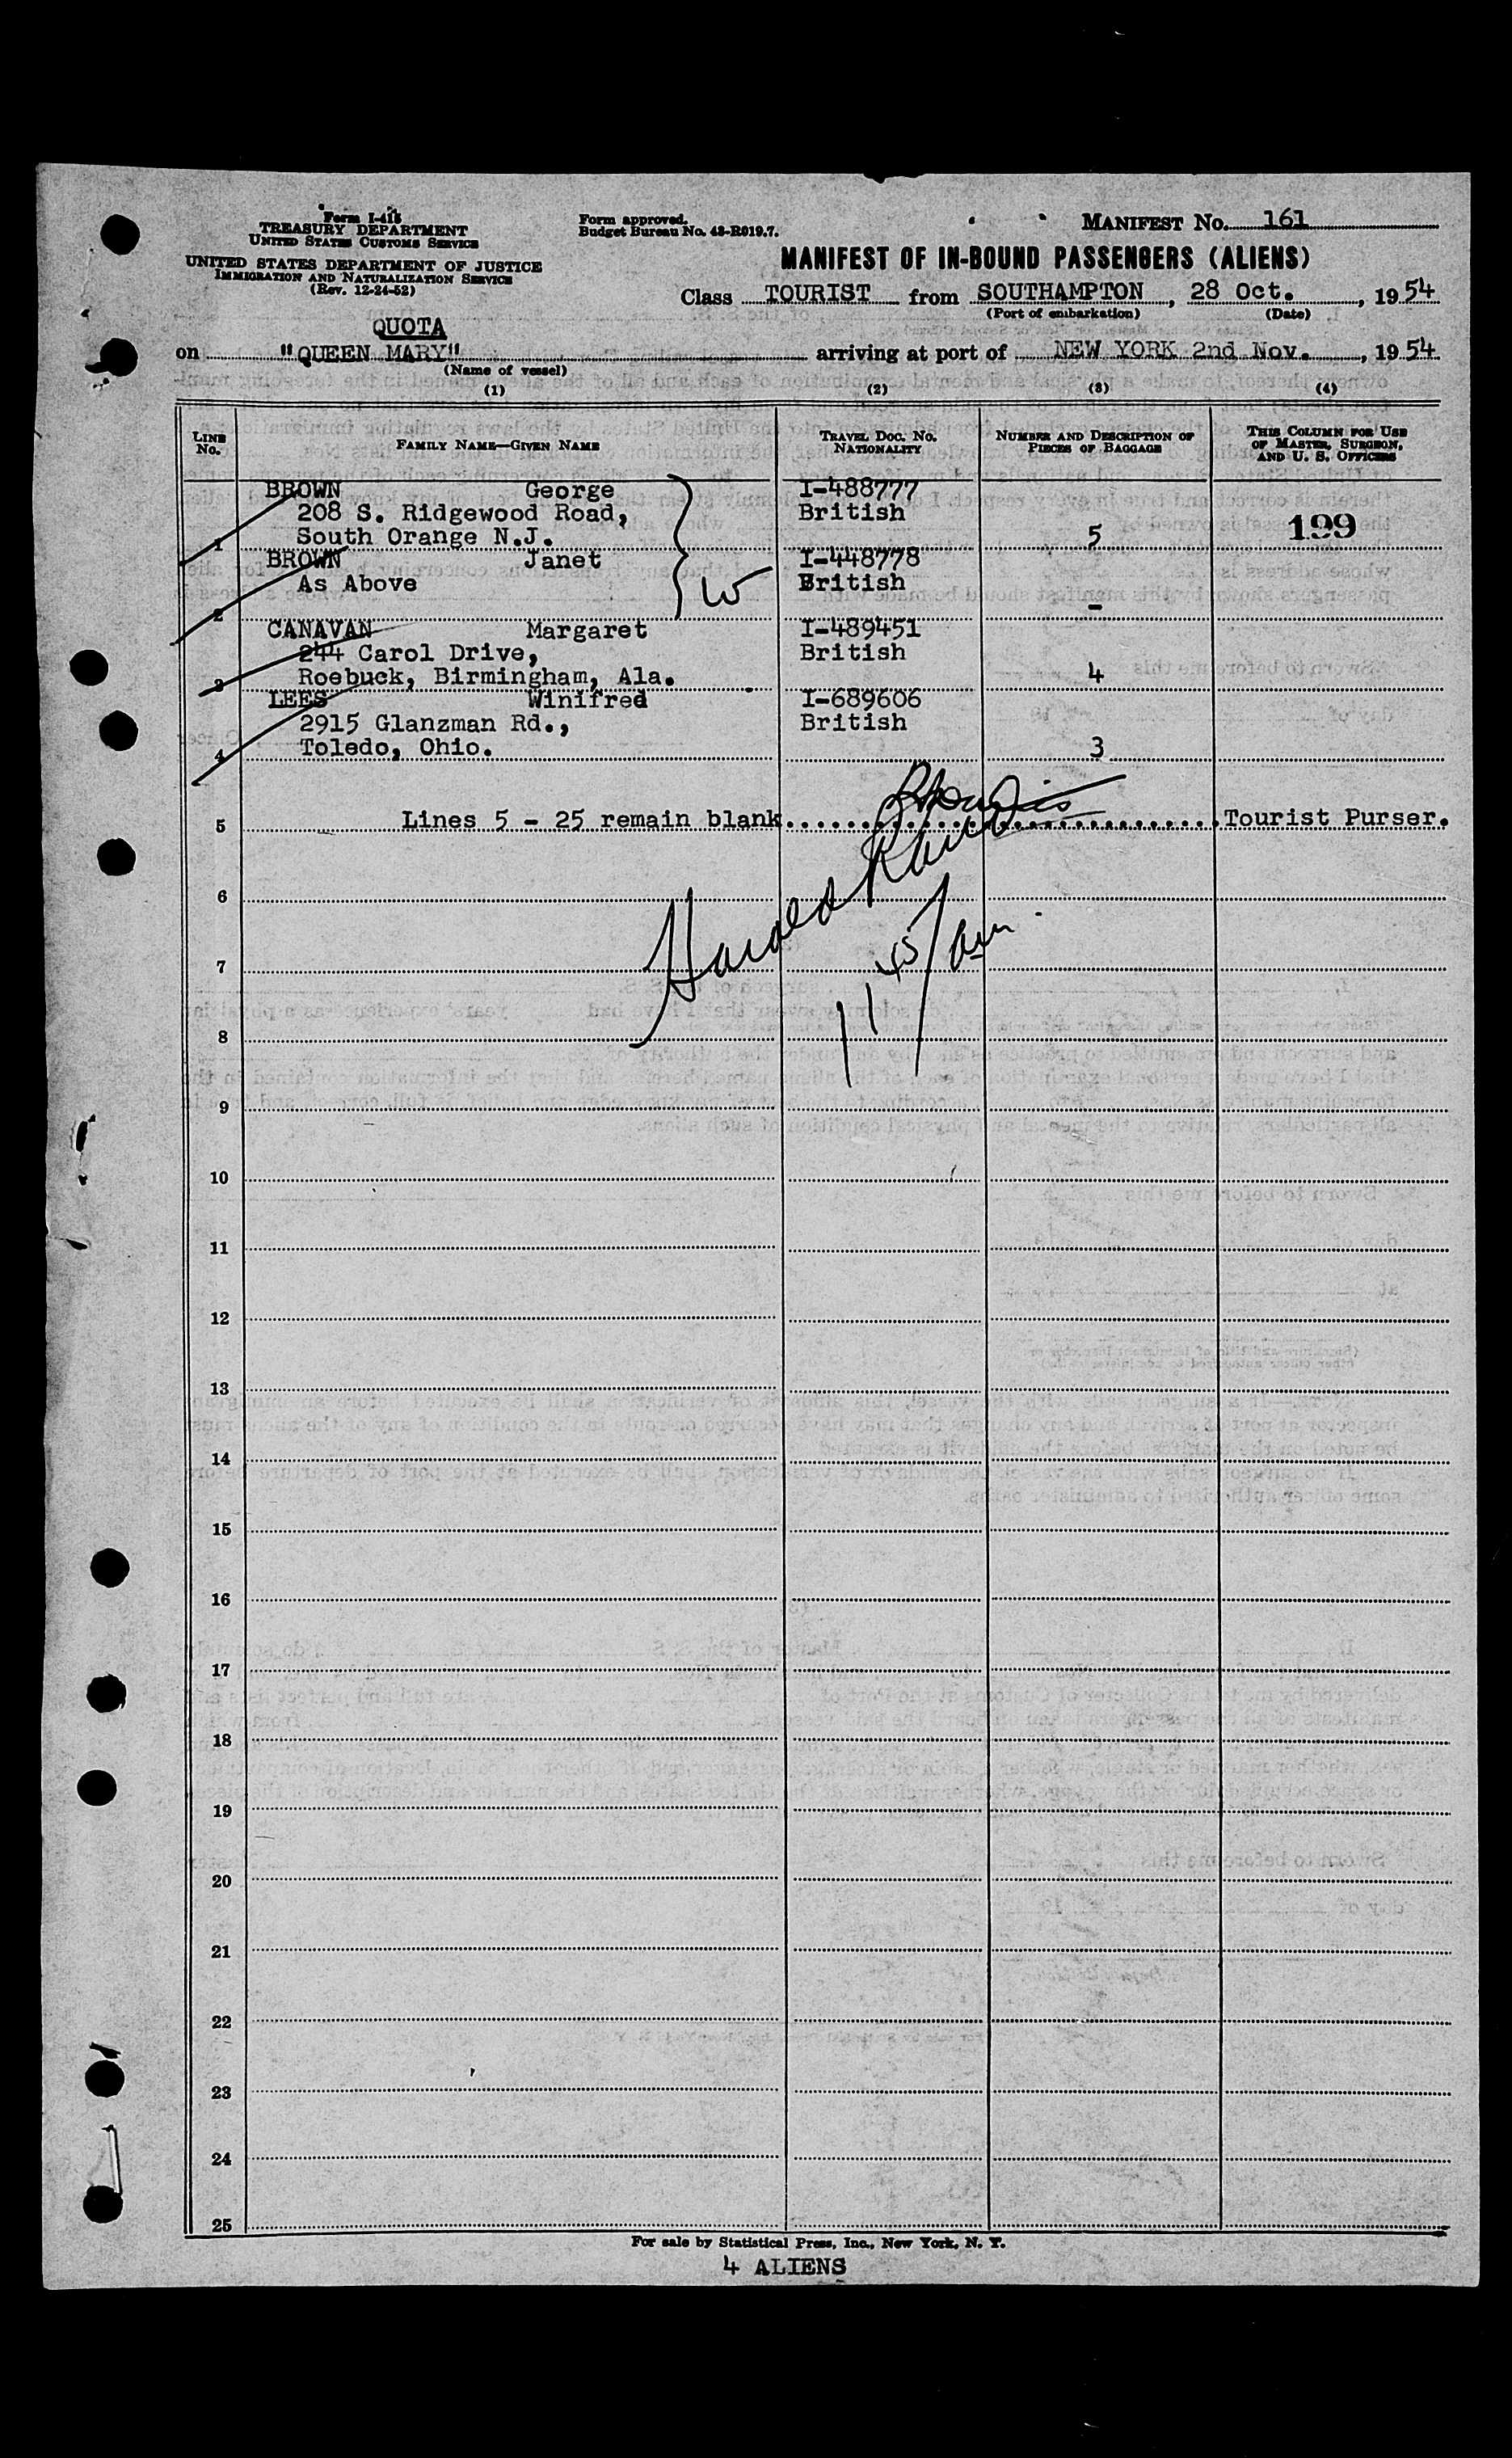 Form I-415
TREASURY DEPARTMENT
UNITED STATES CUSTOMS SERVICE
UNITED STATES DEPARTMENT OF JUSTICE
IMMIGRATION AND NATURALIZATION SERVICE
(Rev. 12-24-52)
Form approved.
Budget Bureau No. 43-R019.7.
MANIFEST No. 161
MANIFEST OF IN-BOUND PASSENGERS (ALIENS)
Class TOURIST from SOUTHAMPTON, 28 Oct., 1954
(Port of embarkation) (Date)
QUOTA
on "QUEEN MARY" arriving at port of NEW YORK 2nd Nov., 1954
(Name of vessel)
(1) (2) (3) (4)
LINE No. FAMILY NAME—GIVEN NAME TRAVEL DOC. No. NATIONALITY NUMBER AND DESCRIPTION OF PIECES OF BAGGAGE THIS COLUMN FOR USE OF MASTER, SURGEON, AND U. S. OFFICERS
BROWN George I-488777
208 S. Ridgewood Road, British
1 South Orange N.J. 5 199
BROWN Janet I-448778
As Above British
2 -
CANAVAN Margaret I-489451
244 Carol Drive, British
3 Roebuck, Birmingham, Ala. 4
LEES Winifred I-689606
2915 Glanzman Rd., British
4 Toledo, Ohio. 3
5 Lines 5 - 25 remain blank Tourist Purser.
6
Harold
7
11 45/am
8
9
10
11
12
13
14
15
16
17
18
19
20
21
22
23
24
25
For sale by Statistical Press, Inc., New York, N. Y.
4 ALIENS